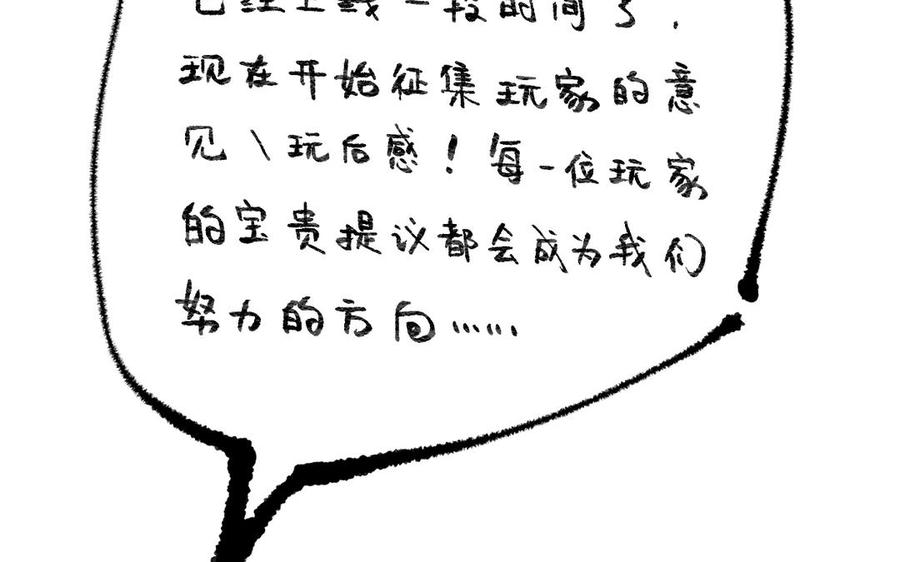 已经上线一段时间了,
现在开始征集玩家的意
见\玩后感!每一位玩家
的宝贵提议都会成为我们
努力的方向……